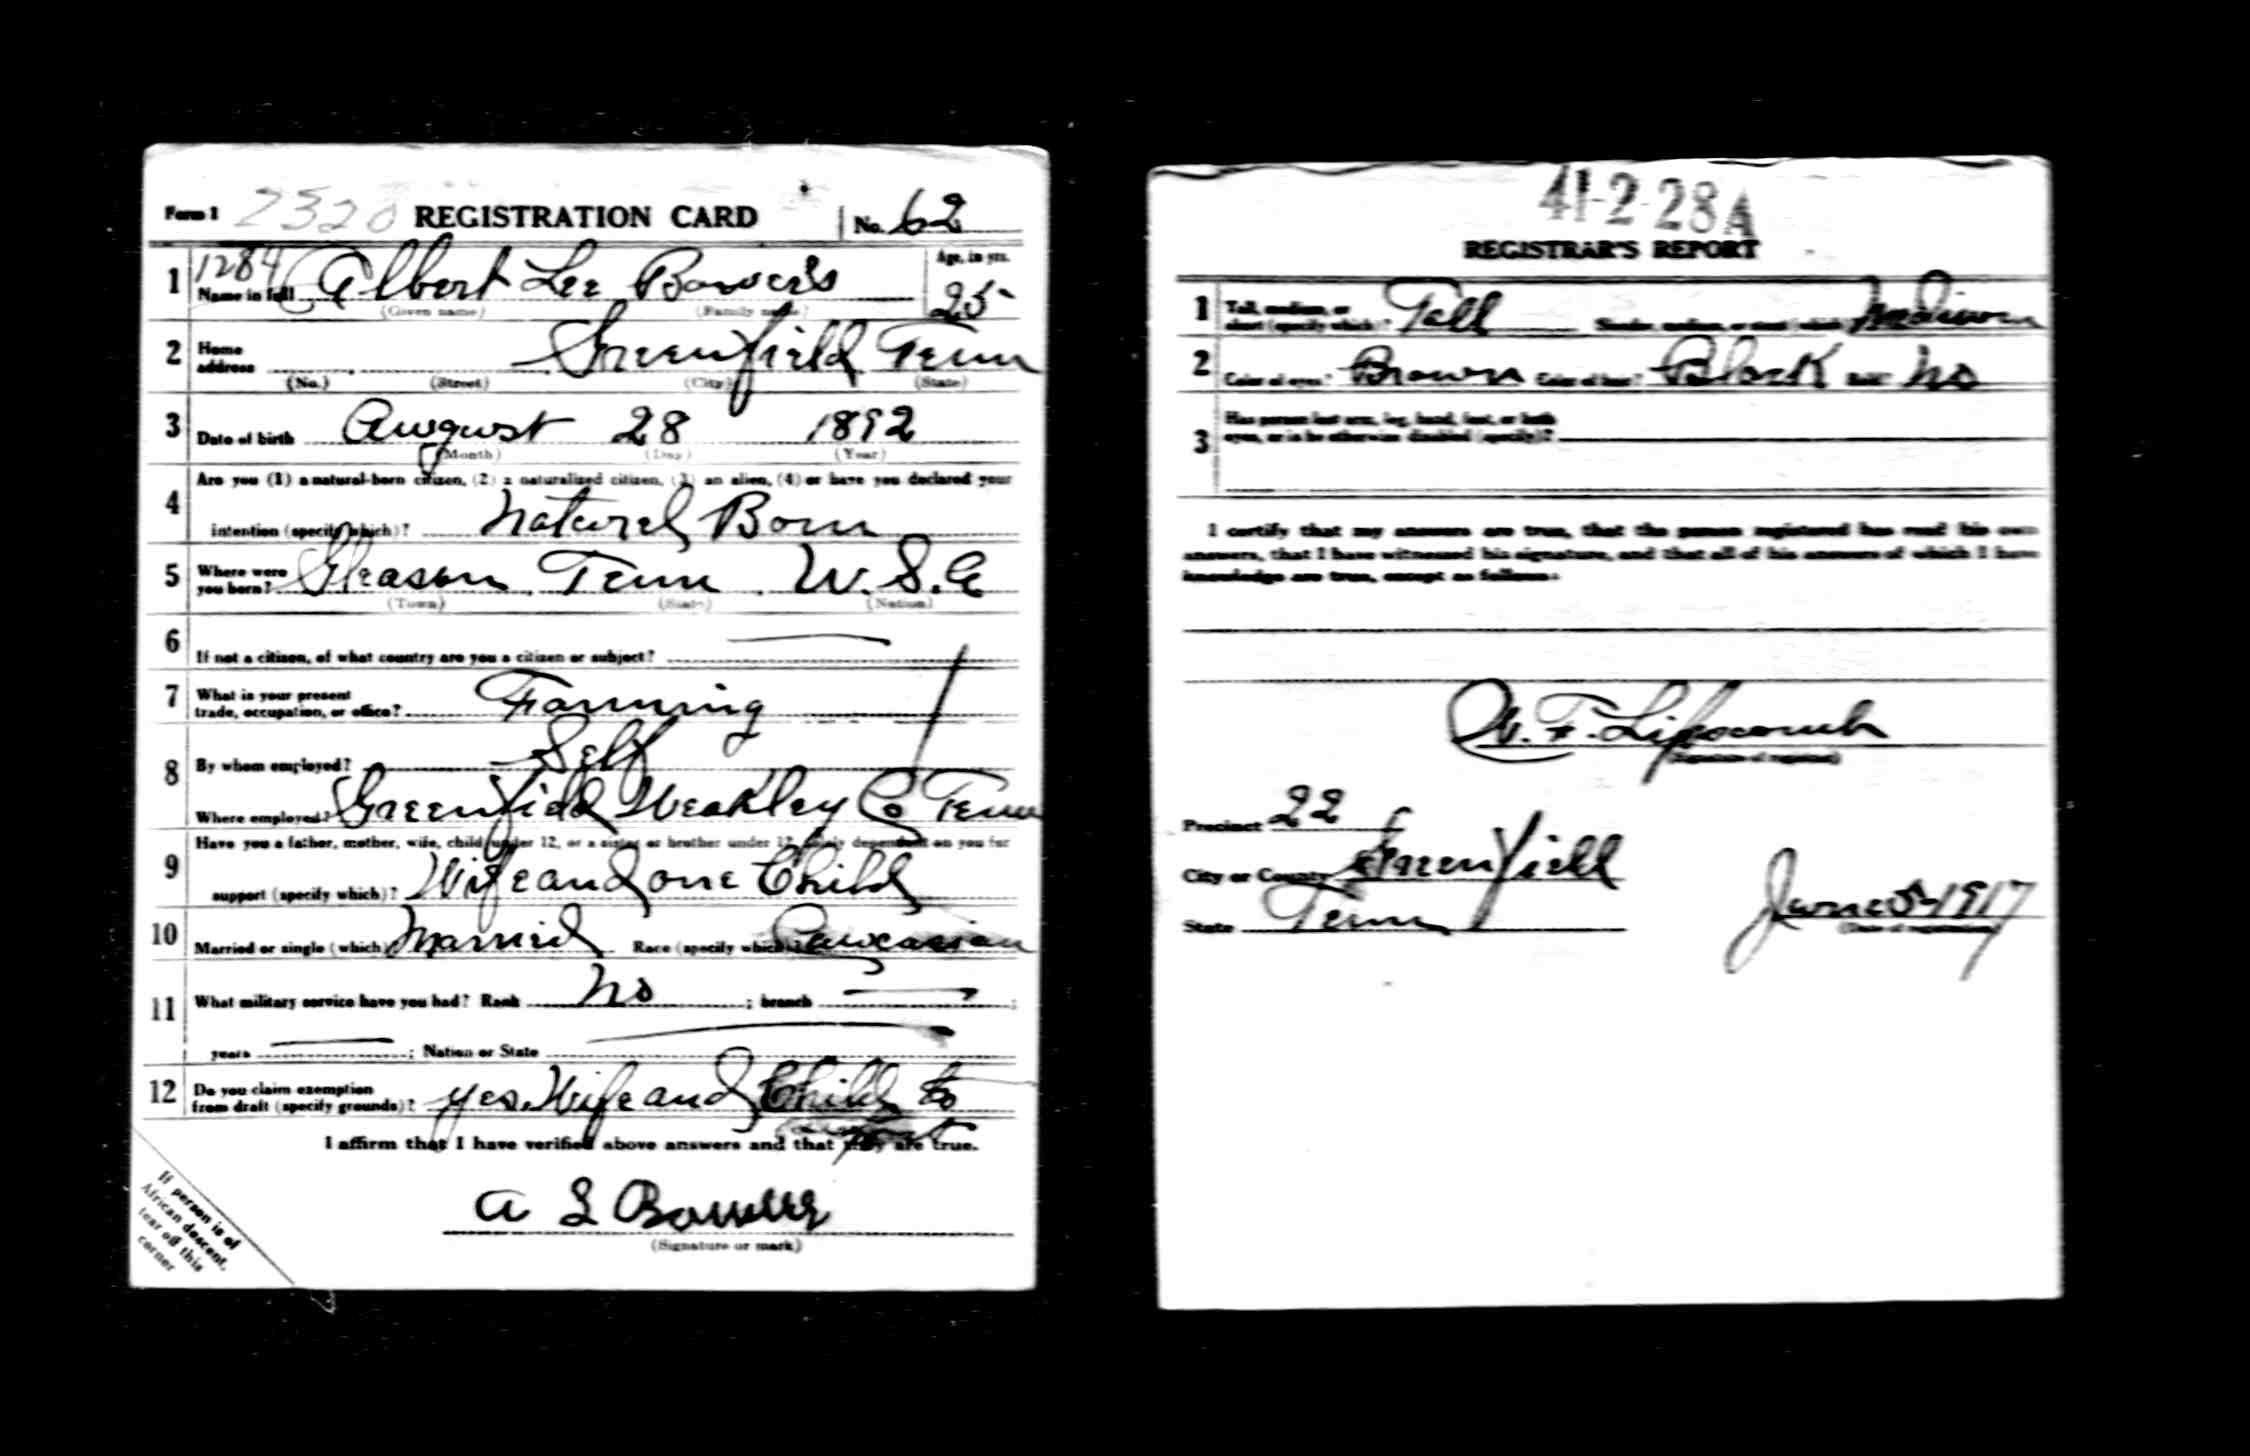 Form 1 2320 REGISTRATION CARD No. 62
1 1284 Name in full Albert Lee Bowers Age, in yrs. 25
(Given name) (Family name)
2 Home address Greenfield Tenn
(No.) (Street) (City) (State)
3 Date of birth August 28 1892
(Month) (Day) (Year)
4 Are you (1) a natural-born citizen, (2) a naturalized citizen, (3) an alien, (4) or have you declared your
intention (specify which)? Natural Born
5 Where were you born? Gleason Tenn U.S.A
(Town) (State) (Nation)
6 If not a citizen, of what country are you a citizen or subject?
7 What is your present trade, occupation, or office? Farming
8 By whom employed? Self
Where employed? Greenfield Weakley Co Tenn
9 Have you a father, mother, wife, child under 12, or a sister or brother under 12, solely dependent on you for
support (specify which)? Wife and one Child
10 Married or single (which)? Married Race (specify which)? Caucasian
11 What military service have you had? Rank No ; branch ;
years ; Nation or State
12 Do you claim exemption from draft (specify grounds)? yes. Wife and Child to
I affirm that I have verified above answers and that they are true.
A L Bowers
(Signature or mark)
If person is of
African descent,
tear off this
corner
41-2-28 A
REGISTRAR'S REPORT
1 Tall, medium, or short (specify which)? Tall Slender, medium, or stout (which)? Medium
2 Color of eyes? Brown Color of hair? Black Bald? No
3 Has person lost arm, leg, hand, foot, or both
eyes, or is he otherwise disabled (specify)?
I certify that my answers are true, that the person registered has read his own
answers, that I have witnessed his signature, and that all of his answers of which I have
knowledge are true, except as follows:
W. F. Lipscomb
(Signature of registrar)
Precinct 22
City or County Greenfield
State Tenn June 5-1917
(Date of registration)